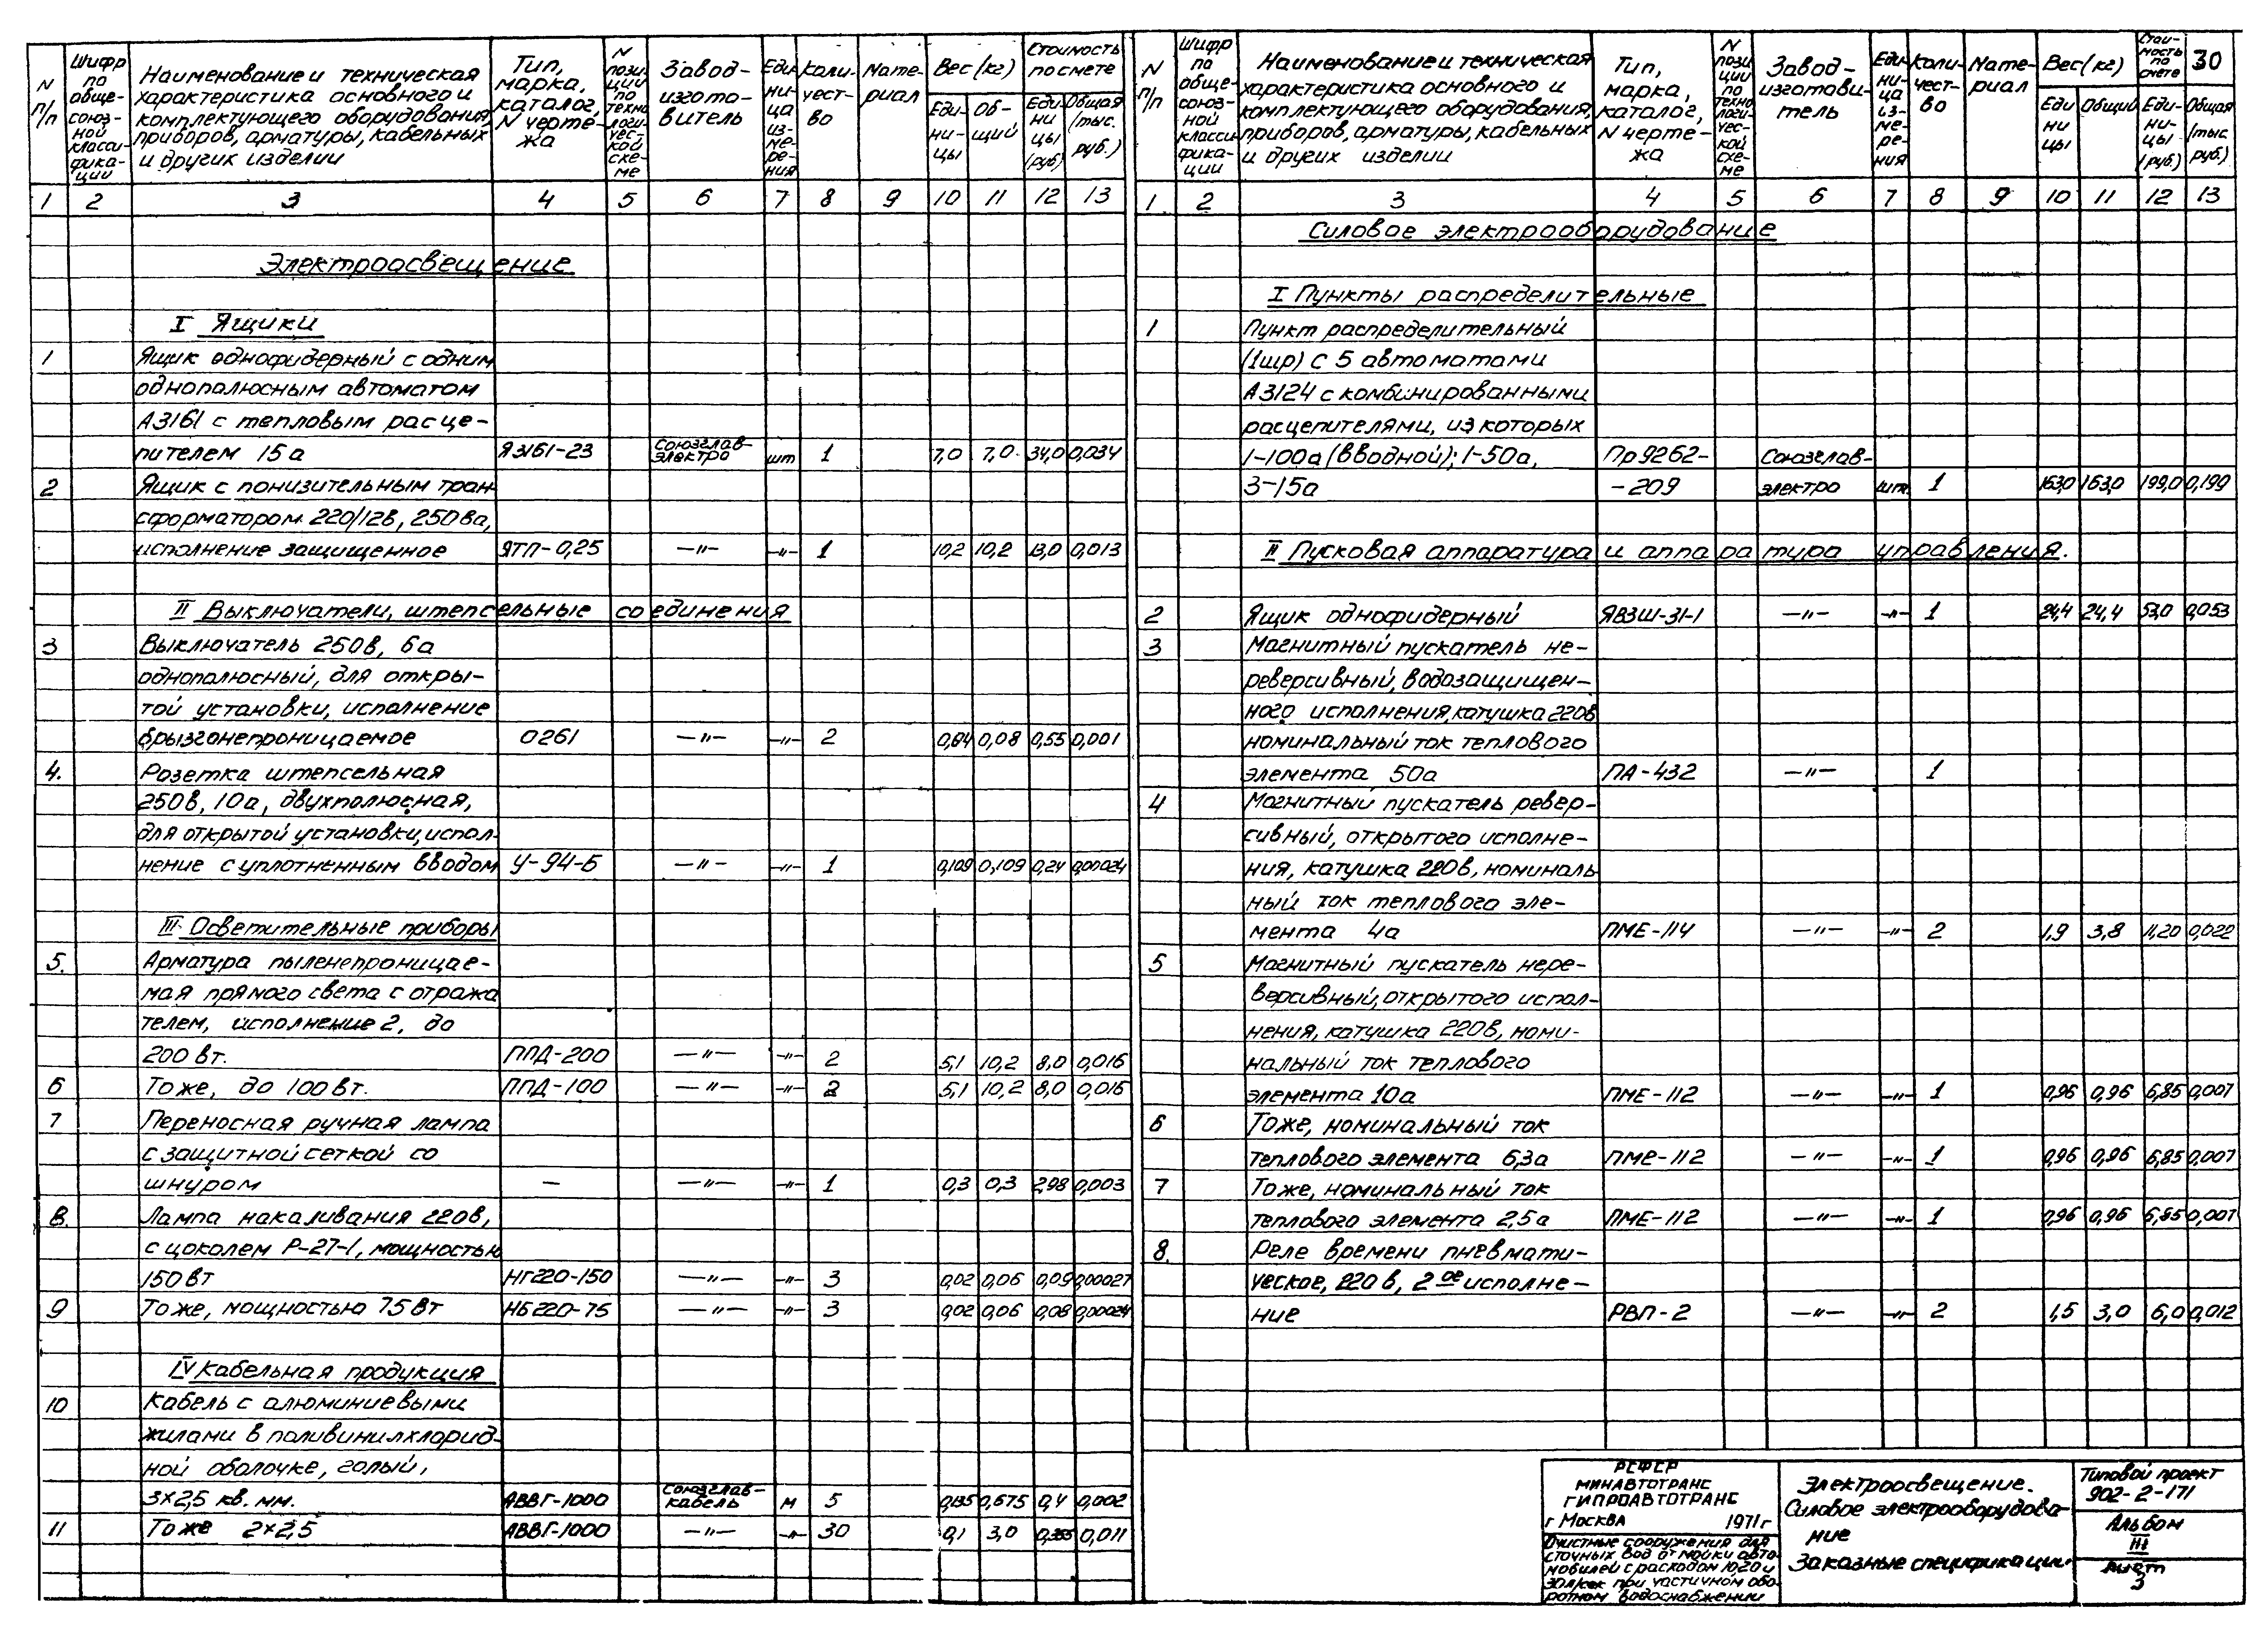 N п/п
Шифр по обще-союз-ной класси-фика-ции
Наименование и техническая характеристика основного и комплектующего оборудования, приборов, арматуры, кабельных и других изделии
Тип, марка, каталог, N черте-жа
N пози-ции по техно-логи-чес-кой схе-ме
Завод-изгото-витель
Еди-ни-ца из-ме-ре-ния
Коли-чест-во
Мате-риал
Вес (кг)
Еди-ни-цы
Об-щий
Стоимость по смете
Еди-ни-цы (руб)
Общая (тыс. руб.)
1 2 3 4 5 6 7 8 9 10 11 12 13
Электроосвещение
I Ящики
1 Ящик однофидерный с одним
однополюсным автоматом
А3161 с тепловым расце-
пителем 15а ЯЗ161-23 Союзглав-электро шт 1 7,0 7,0 34,0 0,034
2 Ящик с понизительным тран-
сформатором 220/12в, 250ва,
исполнение защищенное ЯТП-0,25 —"— —"— 1 10,2 10,2 13,0 0,013
II Выключатели, штепсельные соединения
3 Выключатель 250в, 6а
однополюсный, для откры-
той установки, исполнение
брызгонепроницаемое 0261 —"— —"— 2 0,04 0,08 0,55 0,001
4. Розетка штепсельная
250в, 10а, двухполюсная,
для открытой установки, испол-
нение с уплотненным вводом У-94-Б —"— —"— 1 0,109 0,109 0,24 0,00024
III Осветительные приборы
5. Арматура пыленепроницае-
мая прямого света с отража
телем, исполнение 2, до
200 вт. ППД-200 —"— —"— 2 5,1 10,2 8,0 0,016
6 Тоже, до 100 вт. ППД-100 —"— —"— 2 5,1 10,2 8,0 0,016
7 Переносная ручная лампа
с защитной сеткой со
шнуром — —"— —"— 1 0,3 0,3 2,98 0,003
8. Лампа накаливания 220в,
с цоколем Р-27-1, мощностью
150 вт НГ220-150 —"— —"— 3 0,02 0,06 0,09 0,00027
9 Тоже, мощностью 75 вт НБ220-75 —"— —"— 3 0,02 0,06 0,08 0,00024
IV Кабельная продукция
10 Кабель с алюминиевыми
жилами в поливинилхлорид-
ной оболочке, голый,
3×2,5 кв. мм. АВВГ-1000 Союзглав-кабель м 5 0,135 0,675 0,4 0,002
11 Тоже 2×2,5 АВВГ-1000 —"— —"— 30 0,1 3,0 0,011
N п/п
Шифр по обще-союз-ной класси-фика-ции
Наименование и техническая характеристика основного и комплектующего оборудования, приборов, арматуры, кабельных и других изделии
Тип, марка, каталог, N черте-жа
N пози-ции по техно-логи-чес-кой схе-ме
Завод-изготови-тель
Еди-ни-ца из-ме-ре-ния
Коли-чест-во
Мате-риал
Вес (кг)
Еди ни цы
Общий
Стои-мость по смете
30
Еди-ни-цы (руб.)
Общая (тыс. руб.)
1 2 3 4 5 6 7 8 9 10 11 12 13
Силовое электрооборудование
I Пункты распределительные
1 Пункт распределительный
(1шр) с 5 автоматами
А3124 с комбинированными
расцепителями, из которых
1-100а (вводной); 1-50а, Пр9262- Союзглав-
3-15а -209 электро шт. 1 163,0 163,0 199,0 0,199
II Пусковая аппаратура и аппаратура управления.
2 Ящик однофидерный ЯВЗШ-31-1 —"— —"— 1 24,4 24,4 53,0 0,053
3 Магнитный пускатель не-
реверсивный, водозащищен-
ного исполнения, катушка 220в
номинальный ток теплового
элемента 50а ПА-432 —"— 1
4 Магнитный пускатель ревер-
сивный, открытого исполне-
ния, катушка 220в, номиналь
ный ток теплового эле-
мента 4а ПМЕ-114 —"— —"— 2 1,9 3,8 11,20 0,022
5 Магнитный пускатель нере-
версивный, открытого испол-
нения, катушка 220в, номи-
нальный ток теплового
элемента 10а ПМЕ-112 —"— —"— 1 0,96 0,96 6,85 0,007
6 Тоже, номинальный ток
теплового элемента 6,3а ПМЕ-112 —"— —"— 1 0,96 0,96 6,85 0,007
7 Тоже, номинальный ток
теплового элемента 2,5а ПМЕ-112 —"— —"— 1 0,96 0,96 6,85 0,007
8. Реле времени пневмати-
ческое, 220 в, 2ое исполне-
ние РВП-2 —"— —"— 2 1,5 3,0 6,0 0,012
РСФСР
МИНАВТОТРАНС
ГИПРОАВТОТРАНС
г Москва 1971г
Очистные сооружения для
сточных вод от мойки авто-
мобилей с расходом 10,20 и
30л/сек при частичном обо-
ротном водоснабжении
Электроосвещение.
Силовое электрооборудова-
ние
Заказные спецификации
Типовой проект
902-2-171
Альбом
III
Лист
3